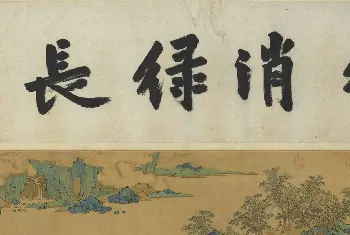 消緑長